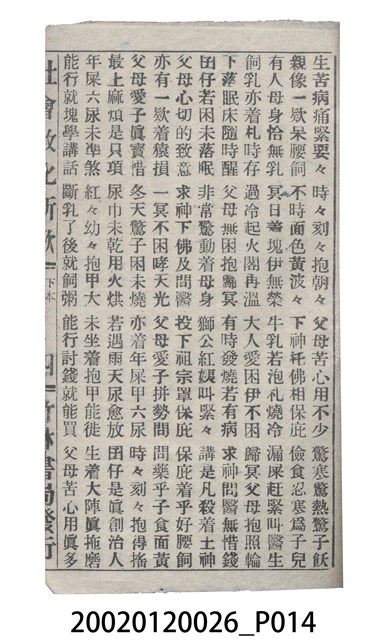 生苦病痛緊要々 時々刻々抱朝々 父母苦心用不少 驚寒驚熱驚子飫
親像一嶽呆腰飼 不時面色黃波々 下神托佛相保庇 儉食忍寒為子兒
有人母身恰無乳 冥日着塊伊無榮 牛乳若泡札燒冷 漏屎赶緊叫醫生
飼乳亦着札時存 過冷起火閣再溫 大人愛困伊不困 歸冥父母抱照輪
下落眠床隨時醒 父母無困抱䆲冥 有時發燒若有病 求神問醫無惜錢
囝仔若困未落眠 非常驚動着母身 獅公紅姨叫緊々 講是凡殺着土神
父母心切的致意 求神下佛及問醫 投下祖宗罩保庇 保庇着乎好腰飼
亦有一嶽着猿損 一冥不困哮天光 父母愛子拼勢問 問藥乎子食面黃
父母愛子眞寶惜 冬天驚子困未燒 亦着年屎甲六尿 時々刻々抱得搖
最上麻煩是只項 尿巾未乾用火烘 若遇雨天尿愈放 囝仔是眞創治人
年屎六尿未準煞 紅々幼々抱甲大 未坐着抱甲能徙 生着大陣眞拖磨
能行就塊學講話 斷乳了後就飼粥 能行討錢就能買 父母苦心用眞多
社會敎化新歌 下本 四 竹林書局發行
20020120026_P014